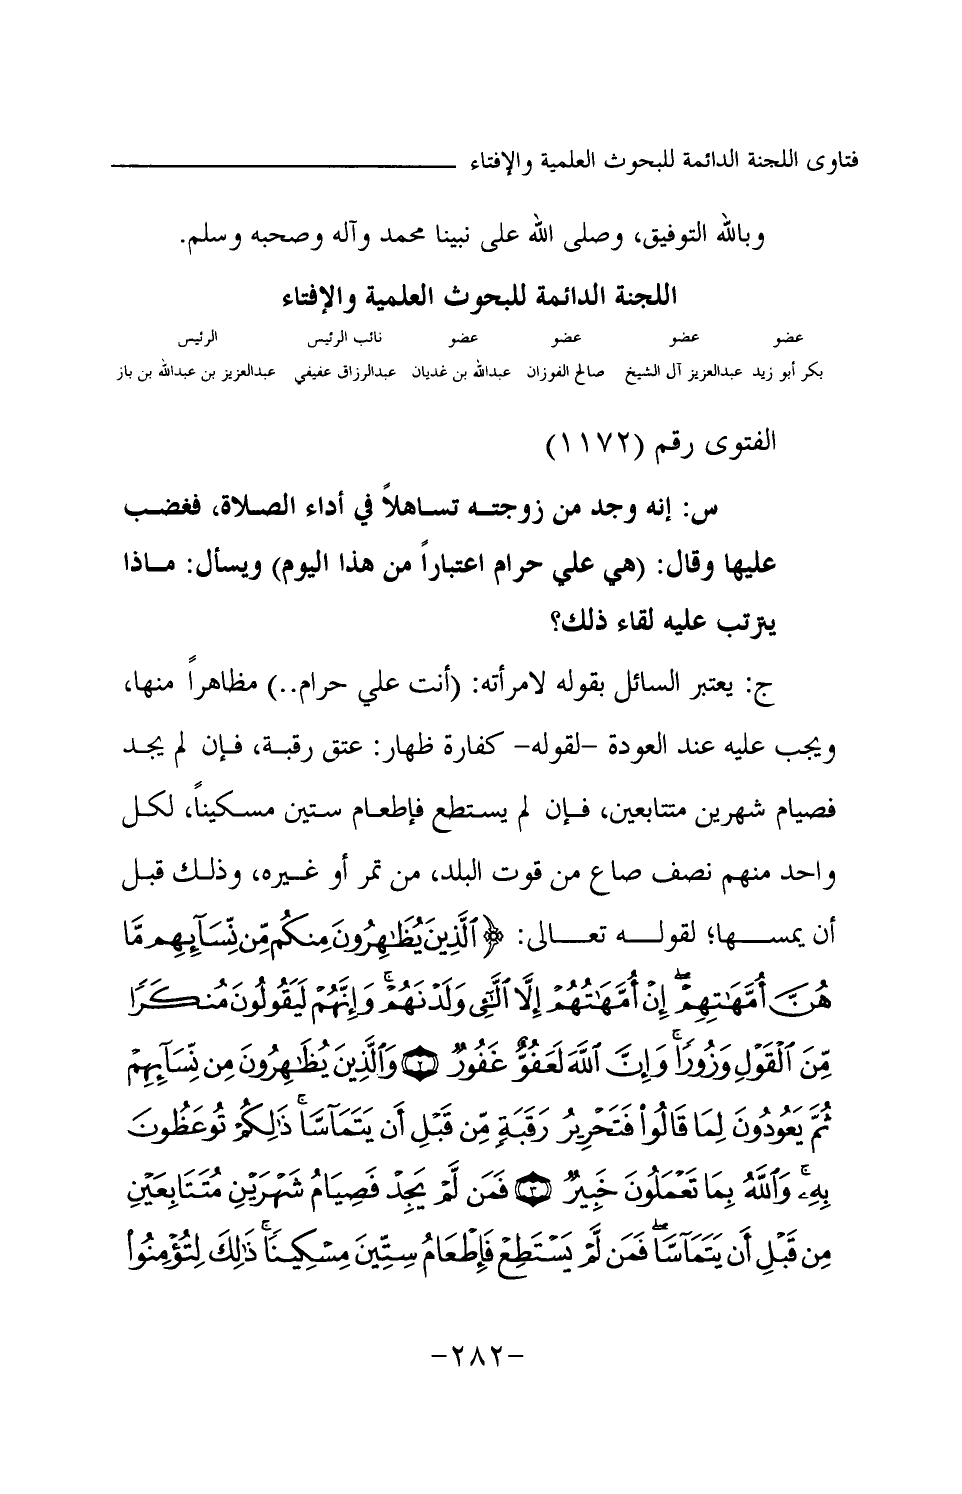 فتاوى اللجنة الدائمة للبحوث العلمية والإفتاء
وبالله التوفيق، وصلى الله على نبينا محمد وآله وصحبه وسلم.
اللجنة الدائمة للبحوث العلمية والإفتاء
عضو عضو عضو عضو نائب الرئيس الرئيس
بكر أبو زيد عبدالعزيز آل الشيخ صالح الفوزان عبدالله بن غديان عبدالرزاق عفيفي عبدالعزيز بن عبدالله بن باز
الفتوى رقم (١١٧٢)
س: إنه وجد من زوجته تساهلاً في أداء الصلاة، فغضب
عليها وقال: (هي علي حرام اعتباراً من هذا اليوم) ويسأل: ماذا
يترتب عليه لقاء ذلك؟
ج: يعتبر السائل بقوله لامرأته: (أنت علي حرام..) مظاهراً منها،
ويجب عليه عند العودة -لقوله- كفارة ظهار: عتق رقبة، فإن لم يجد
فصيام شهرين متتابعين، فإن لم يستطع فإطعام ستين مسكيناً، لكل
واحد منهم نصف صاع من قوت البلد، من تمر أو غيره، وذلك قبل
أن يمسها؛ لقوله تعالى: ﴿ٱلَّذِينَ يُظَٰهِرُونَ مِنكُم مِّن نِّسَآئِهِم مَّا
هُنَّ أُمَّهَٰتِهِمْۖ إِنْ أُمَّهَٰتُهُمْ إِلَّا ٱلَّٰٓـِٔى وَلَدْنَهُمْۚ وَإِنَّهُمْ لَيَقُولُونَ مُنكَرًا
مِّنَ ٱلْقَوْلِ وَزُورًاۚ وَإِنَّ ٱللَّهَ لَعَفُوٌّ غَفُورٌ ٢ وَٱلَّذِينَ يُظَٰهِرُونَ مِن نِّسَآئِهِمْ
ثُمَّ يَعُودُونَ لِمَا قَالُوا۟ فَتَحْرِيرُ رَقَبَةٍ مِّن قَبْلِ أَن يَتَمَآسَّاۚ ذَٰلِكُمْ تُوعَظُونَ
بِهِۦۚ وَٱللَّهُ بِمَا تَعْمَلُونَ خَبِيرٌ ٣ فَمَن لَّمْ يَجِدْ فَصِيَامُ شَهْرَيْنِ مُتَتَابِعَيْنِ
مِن قَبْلِ أَن يَتَمَآسَّاۖ فَمَن لَّمْ يَسْتَطِعْ فَإِطْعَامُ سِتِّينَ مِسْكِينًاۚ ذَٰلِكَ لِتُؤْمِنُوا۟
-٢٨٢-